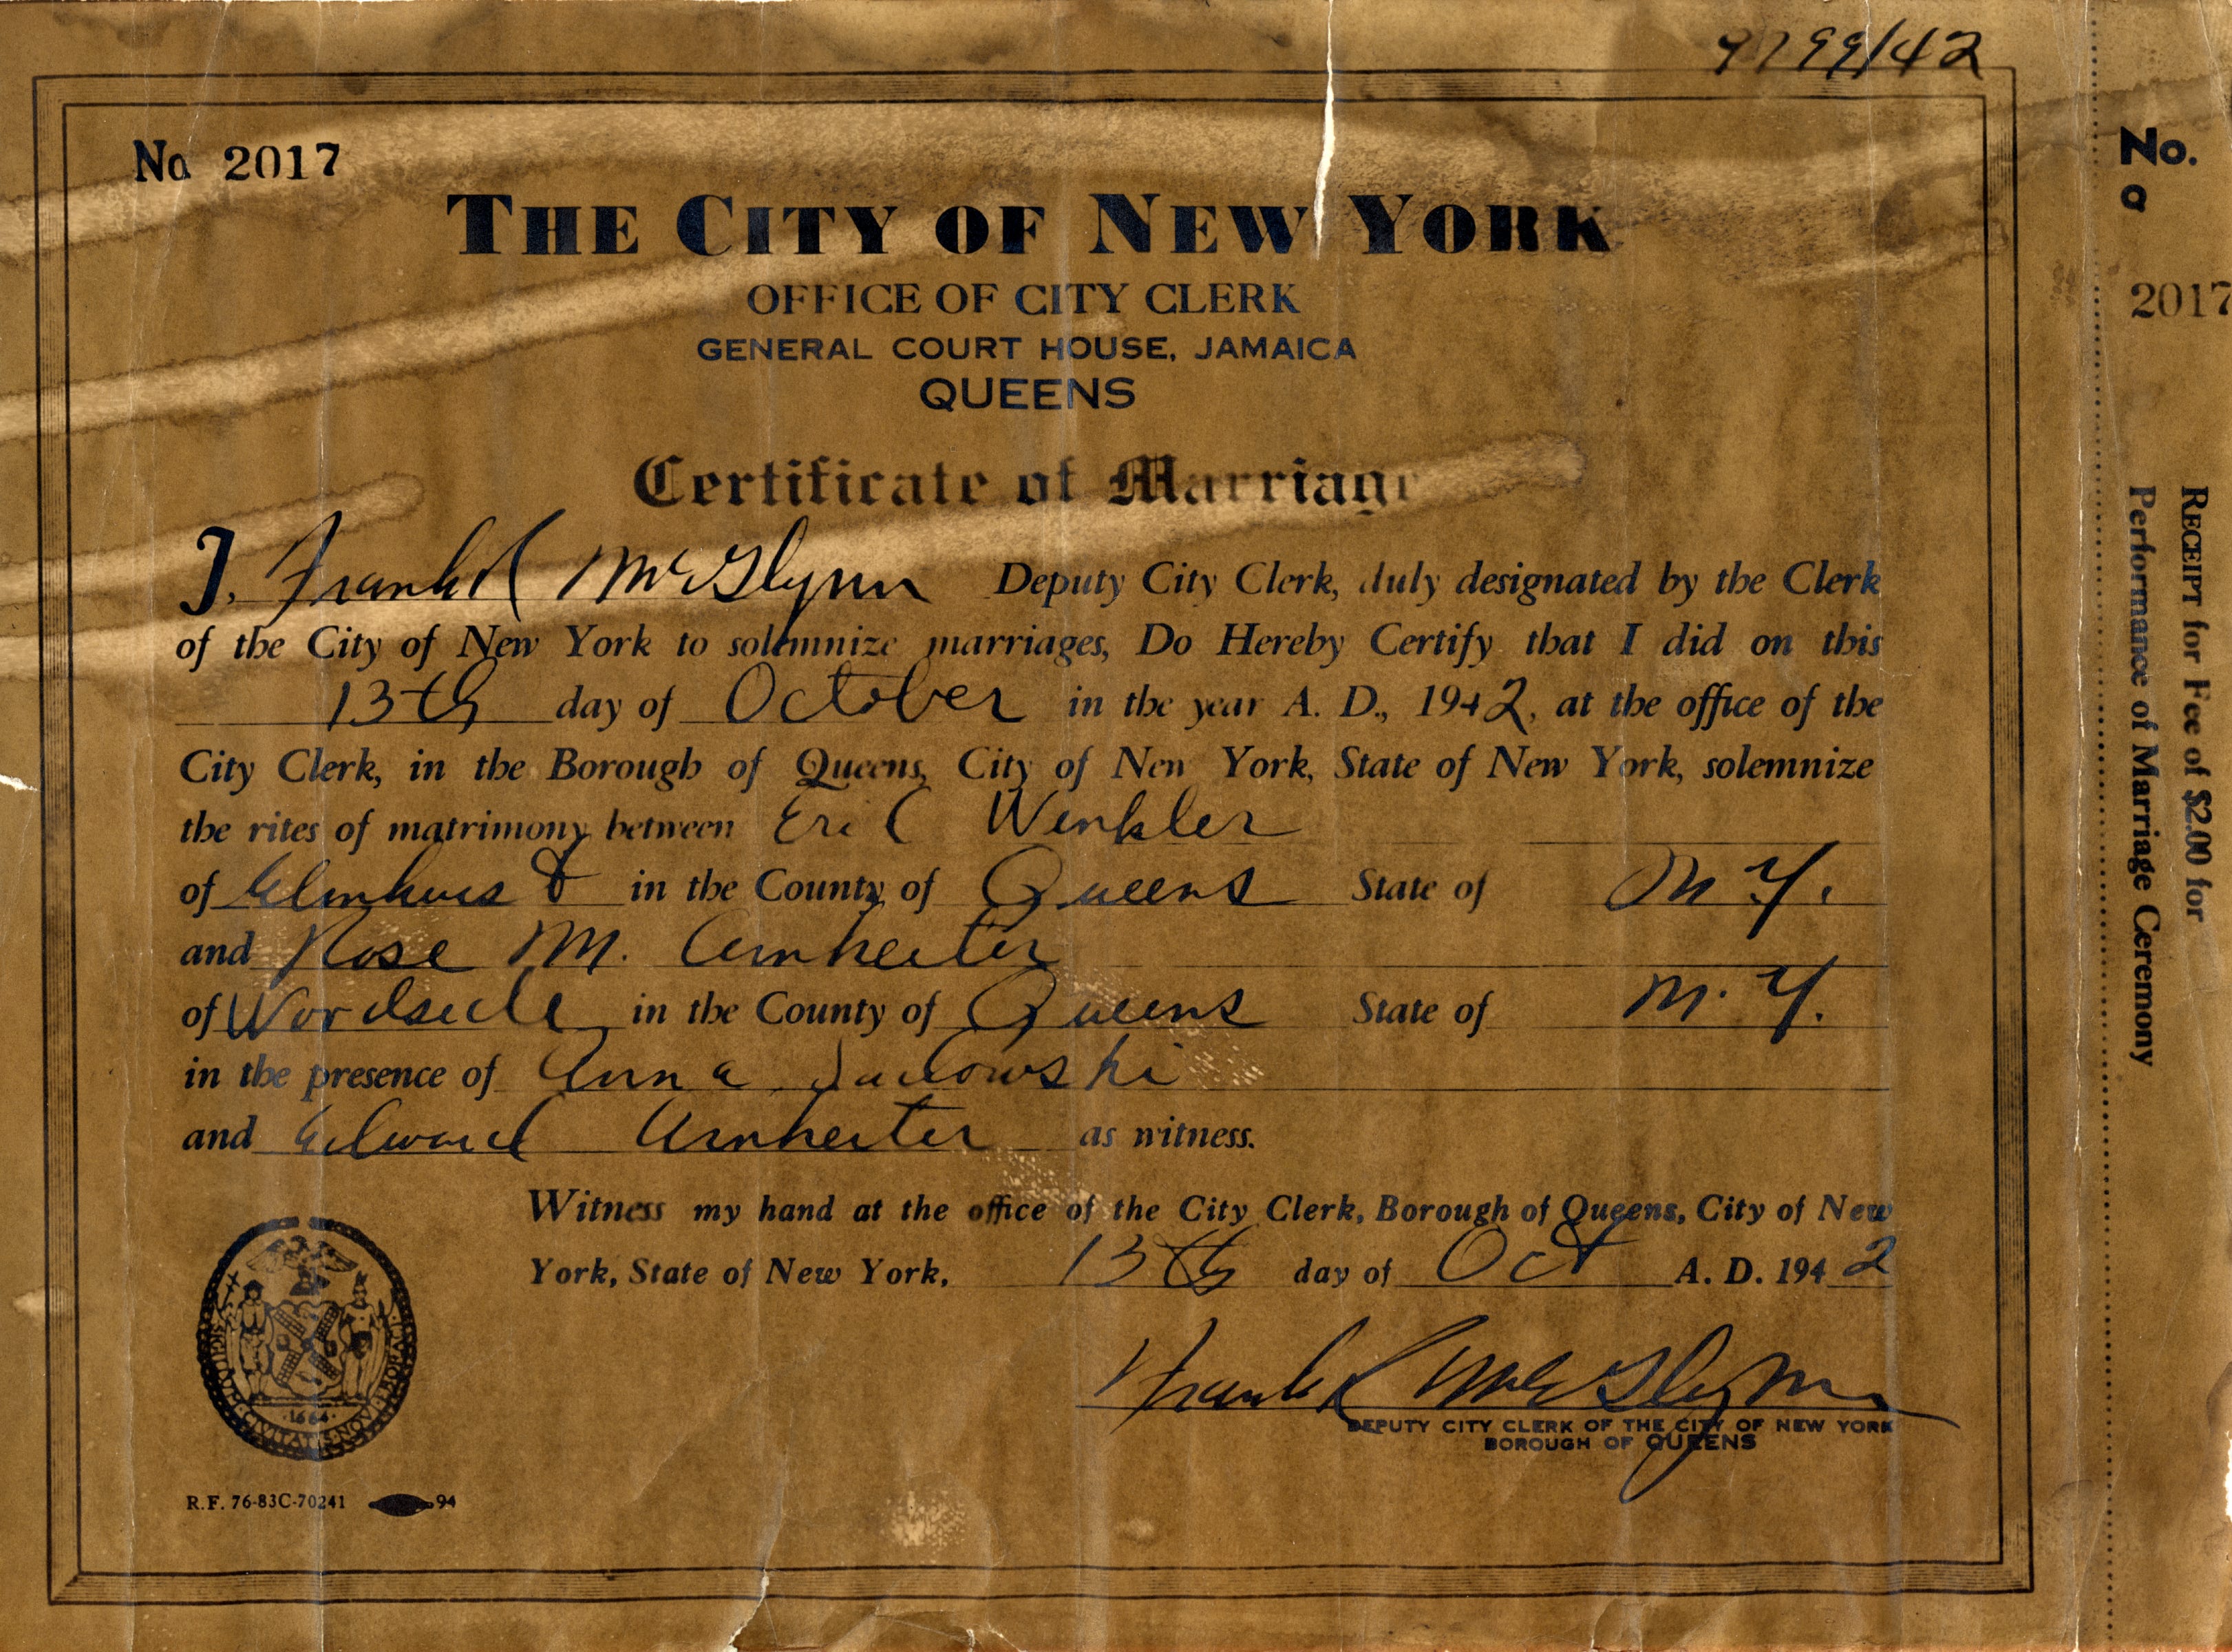 9799/42
No 2017
THE CITY OF NEW YORK
OFFICE OF CITY CLERK
GENERAL COURT HOUSE, JAMAICA
QUEENS
Certificate of Marriage
I, Frank McGlynn Deputy City Clerk, duly designated by the Clerk
of the City of New York to solemnize marriages, Do Hereby Certify that I did on this
13th day of October in the year A. D., 1942, at the office of the
City Clerk, in the Borough of Queens, City of New York, State of New York, solemnize
the rites of matrimony between Eric Winkler
of Elmhurst in the County of Queens State of N.Y.
and Rose M. Arnheiter
of Woodside in the County of Queens State of N.Y.
in the presence of Anna
and Edward Arnheiter as witness.
Witness my hand at the office of the City Clerk, Borough of Queens, City of New
York, State of New York, 13th day of Oct A. D. 1942
Frank McGlynn
DEPUTY CITY CLERK OF THE CITY OF NEW YORK
BOROUGH OF QUEENS
SIGILLUM CIVITATIS NOVI EBORACI
1664
R.F. 76-83C-70241 94
No.
Q
2017
RECEIPT for Fee of $2.00 for
Performance of Marriage Ceremony